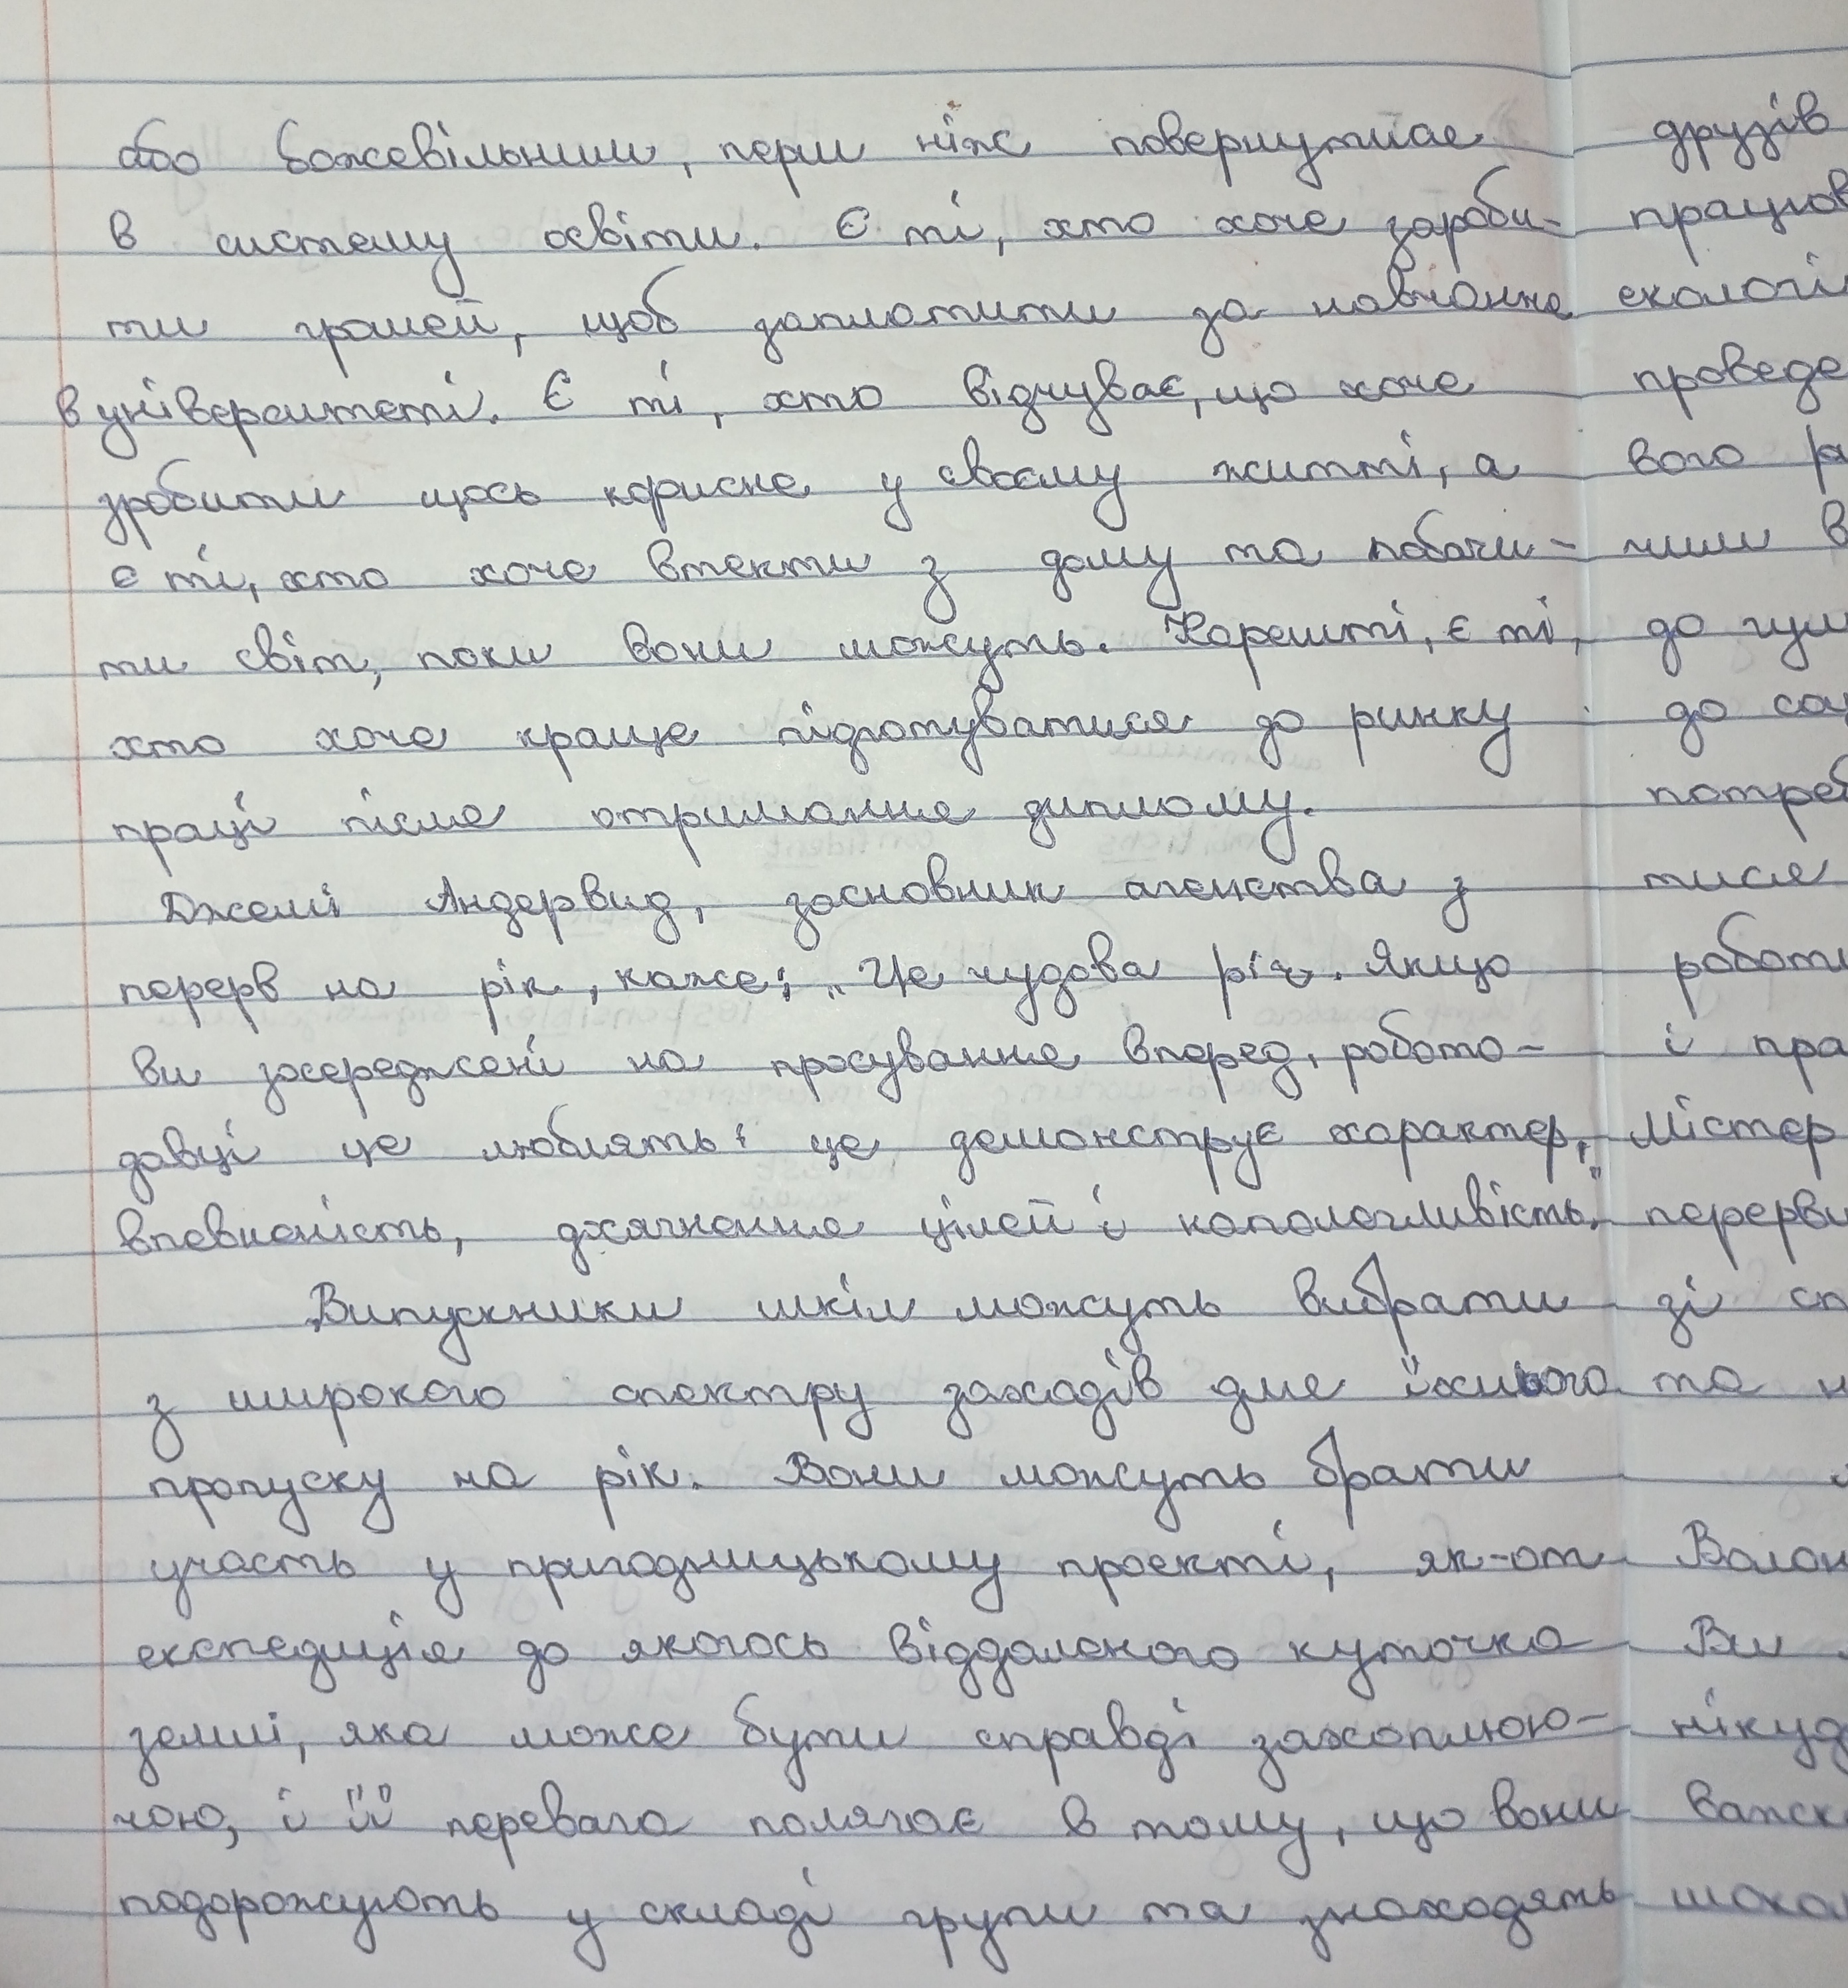 або божевільним, перш ніж повернутися
в систему освіти. Є ті, хто хоче зароби-
ти грошей, щоб заплатити за навчання
в університеті. Є ті, хто відчуває, що хоче
зробити щось корисне у своєму житті, а
є ті, хто хоче втекти з дому та побачи-
ти світ, поки вони можуть. Нарешті, є ті,
хто хоче краще підготуватися до ринку
праці після отримання диплому.
Джемі Андервид, засновник агенства з
перерв на рік, каже: „Це чудова річ. Якщо
ви зосереджені на просування вперед, робото-
давці це люблять: це демонструє характер,
впевненість, досягнення цілей і наполегливість."
Випускники шкіл можуть вибрати
з широкого спектру заходів для їхнього
пропуску на рік. Вони можуть брати
участь у пригодницькому проекті, як-от
експедиція до якогось віддаленого куточка
землі, яка може бути справді захоплюю-
чою, і її перевага полягає в тому, що вони
подорожують у складі групи та знаходять
друзів
працюв
екологі
проведе
вого
чим в
до гум
до соц
потреб
тися
роботи
і пра
Містер
перерви
зі сп
та н
Волон
Ви
нікуд
важк